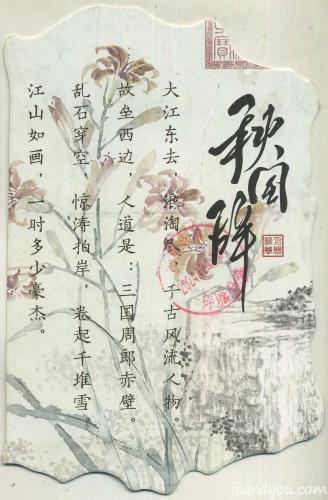 大江东去，浪淘尽，千古风流人物。
故垒西边，人道是：三国周郎赤壁。
乱石穿空，惊涛拍岸，卷起千堆雪。
江山如画，一时多少豪杰。
icardyou.com